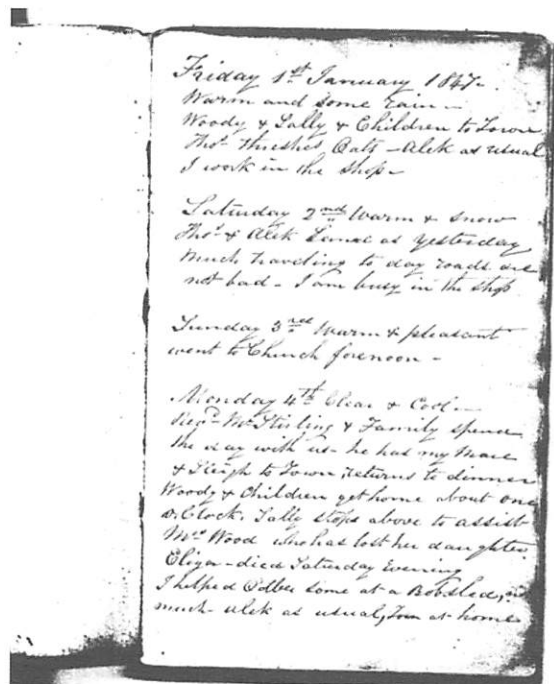 Friday 1st January 1847-
Warm and some rain-
Woody & Sally & Children to Town
Thos threshes Oats - Alek as usual
I work in the shop-
Saturday 2nd Warm & snow
Thos & Alek Same as yesterday
Much traveling to day roads are
not bad - I am busy in the shop
Sunday 3rd Warm & pleasant
went to Church forenoon -
Monday 4th Clear & Cool-
Mr Stirling & Family spend
the day with us - he has my Mare
& Sleigh to Town, returns to dinner
Woody & Children get home about one
o.Clock. Sally stops above to assist
Mrs Wood who has lost her daughter
Eliza - died Saturday Evening
I helped some at a Bobsled,
much - Alek as usual, Tom at home